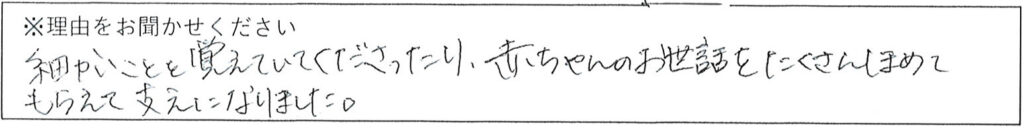 ※理由をお聞かせください
細かいことを覚えていてくださったり、赤ちゃんのお世話をたくさんほめて
もらえて支えになりました。